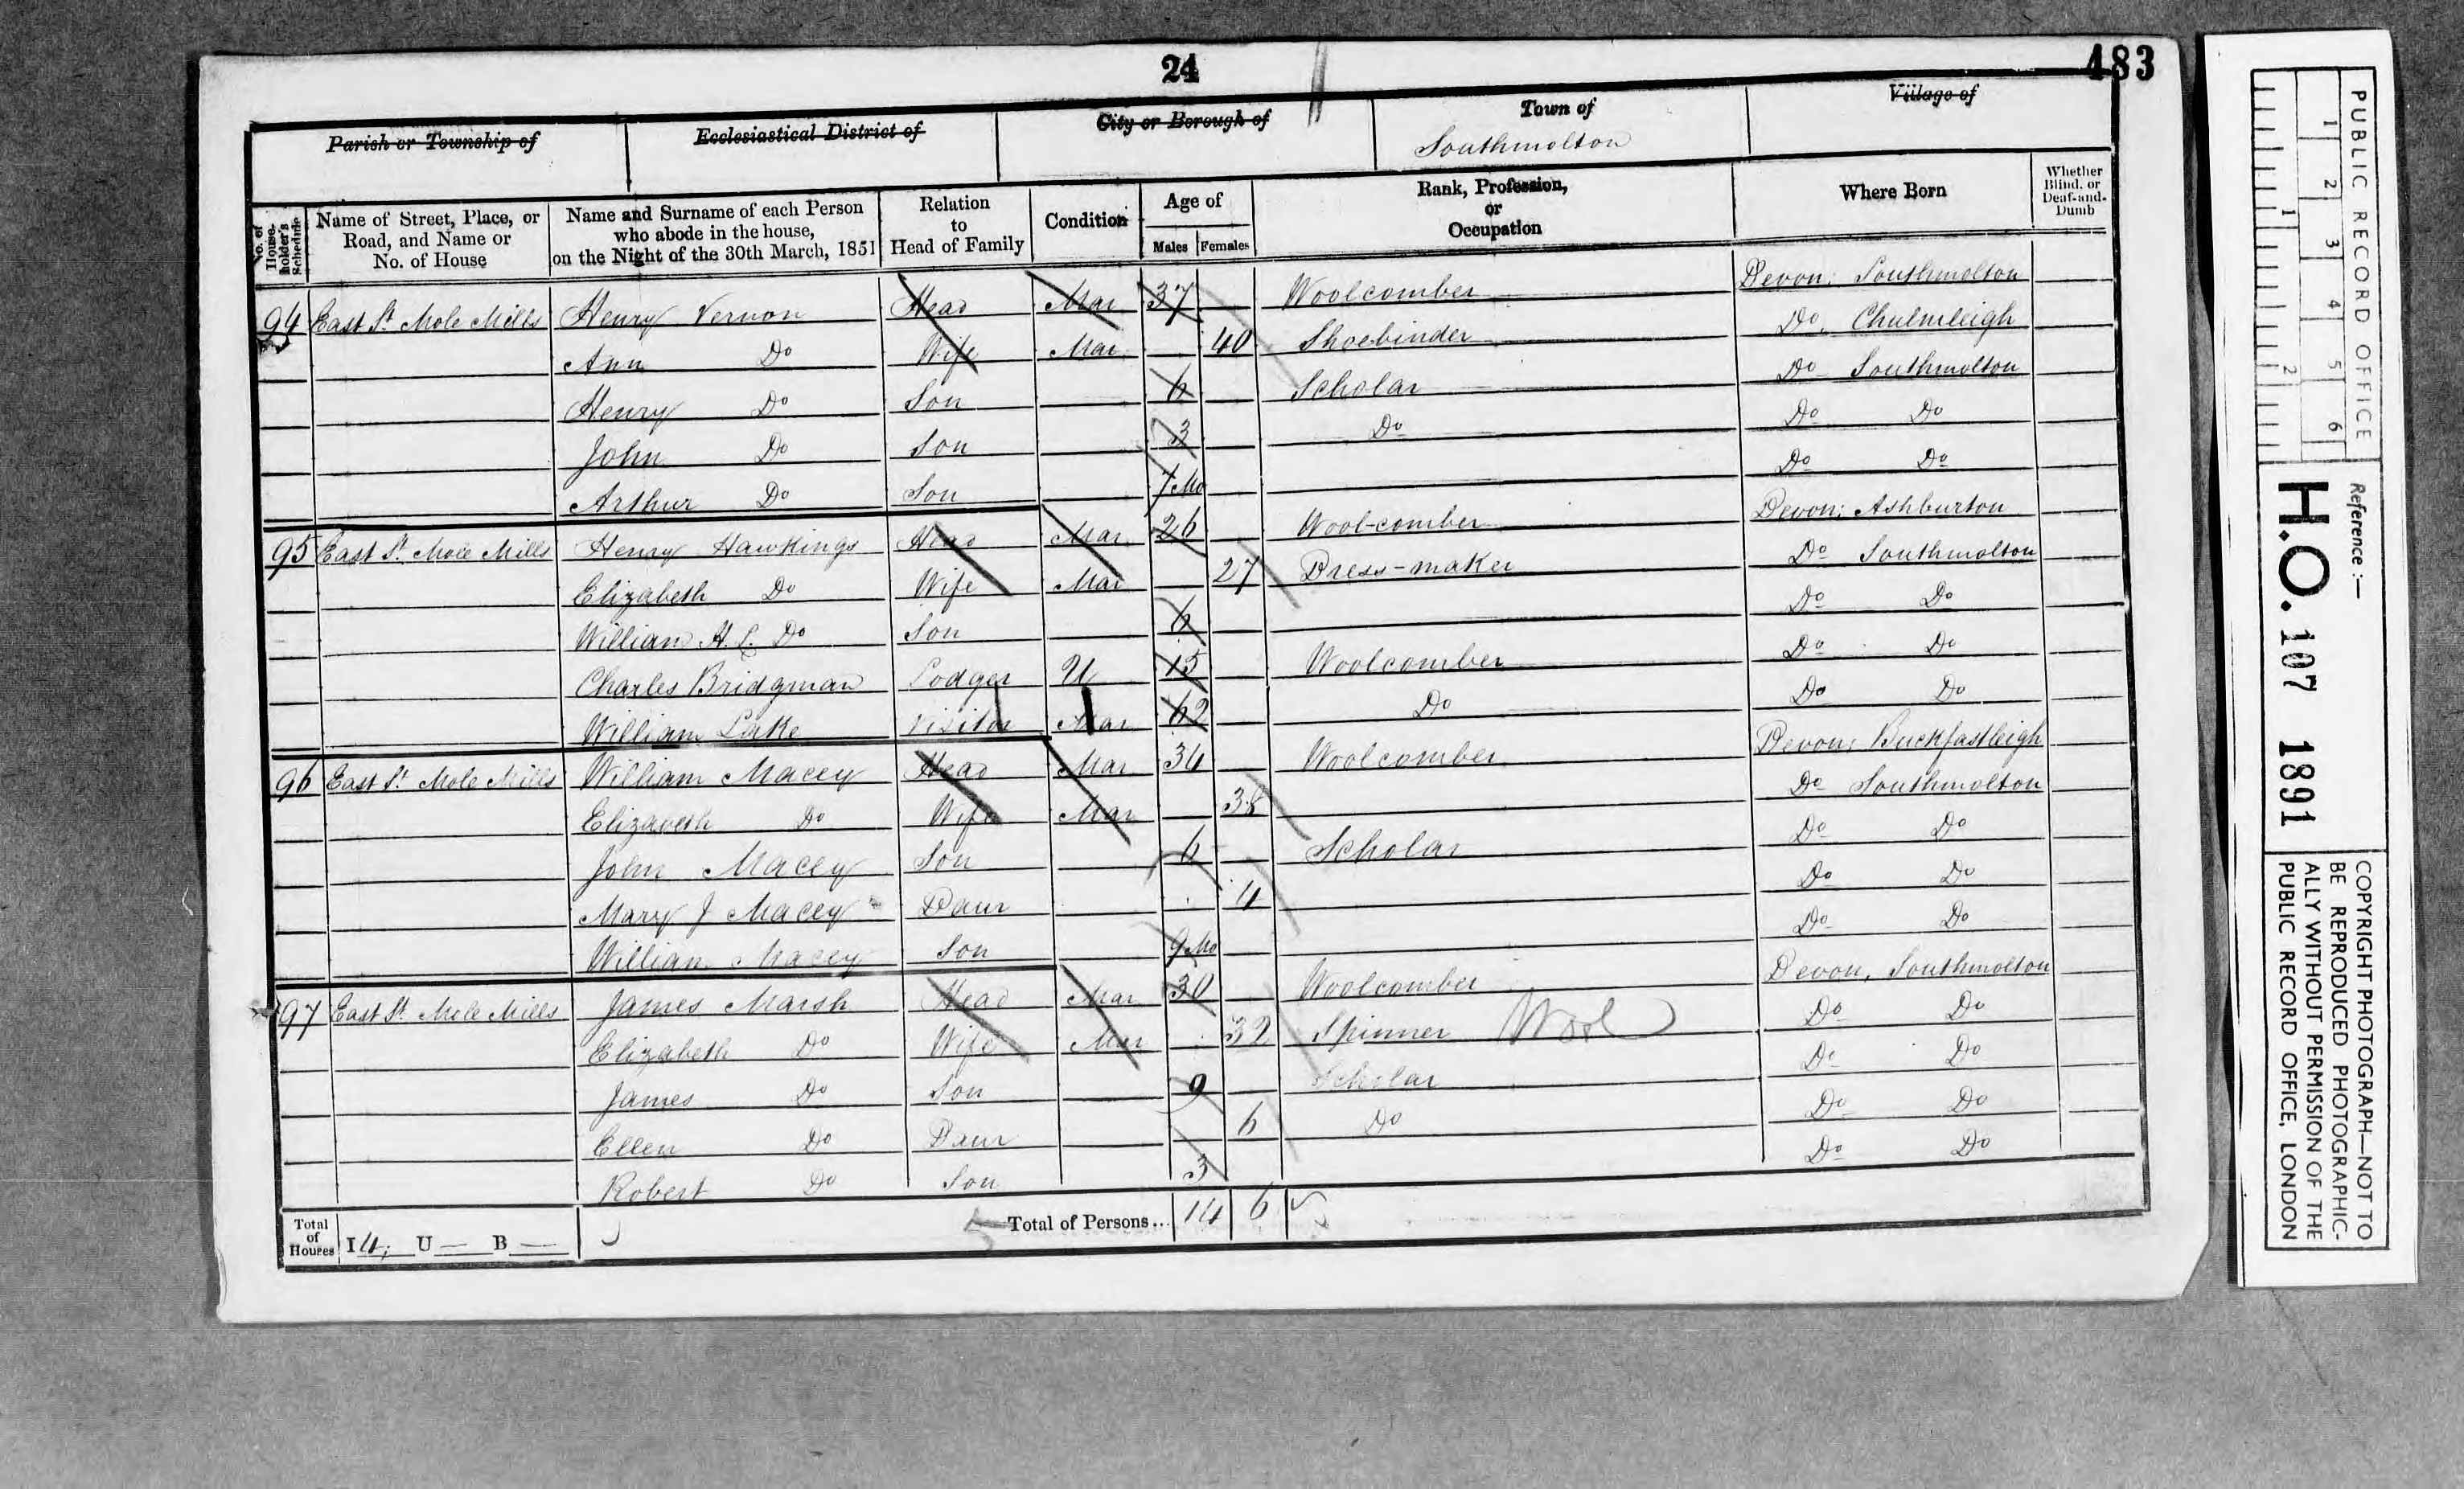 24
483
Parish or Township of Ecclesiastical District of City or Borough of Town of Village of
Southmolton
No. of House-holder's Schedule Name of Street, Place, or Road, and Name or No. of House Name and Surname of each Person who abode in the house, on the Night of the 30th March, 1851 Relation to Head of Family Condition Age of Males Females Rank, Profession, or Occupation Where Born Whether Blind, or Deaf-and-Dumb
94 East St Mole Mills Henry Vernon Head Mar 37 Woolcomber Devon; Southmolton
Ann Do Wife Mar 40 Shoebinder Do Chulmleigh
Henry Do Son 6 Scholar Do Southmolton
John Do Son 3 Do Do Do
Arthur Do Son 7 Mo Do Do
95 East St Mole Mills Henry Hawkings Head Mar 26 Wool-comber Devon; Ashburton
Elizabeth Do Wife Mar 27 Dress-maker Do Southmolton
William H. L. Do Son 6 Do Do
Charles Bridgman Lodger U 15 Woolcomber Do Do
William Lake Visitor Mar 62 Do Do Do
96 East St Mole Mills William Macey Head Mar 34 Woolcomber Devon; Buckfastleigh
Elizabeth Do Wife Mar 38 Do Southmolton
John Macey Son 6 Scholar Do Do
Mary J Macey Daur 4 Do Do
William Macey Son 9 Mo Do Do
97 East St Mole Mills James Marsh Head Mar 30 Woolcomber Devon, Southmolton
Elizabeth Do Wife Mar 32 Spinner Wool Do Do
James Do Son 9 Scholar Do Do
Ellen Do Daur 6 Do Do Do
Robert Do Son 3 Do Do
Total of Houses I 4; U — B — Total of Persons... 14 6
PUBLIC RECORD OFFICE
1 2 3 4 5 6
1 2
Reference :—
H.O. 107 1891
COPYRIGHT PHOTOGRAPH—NOT TO
BE REPRODUCED PHOTOGRAPHIC-
ALLY WITHOUT PERMISSION OF THE
PUBLIC RECORD OFFICE, LONDON